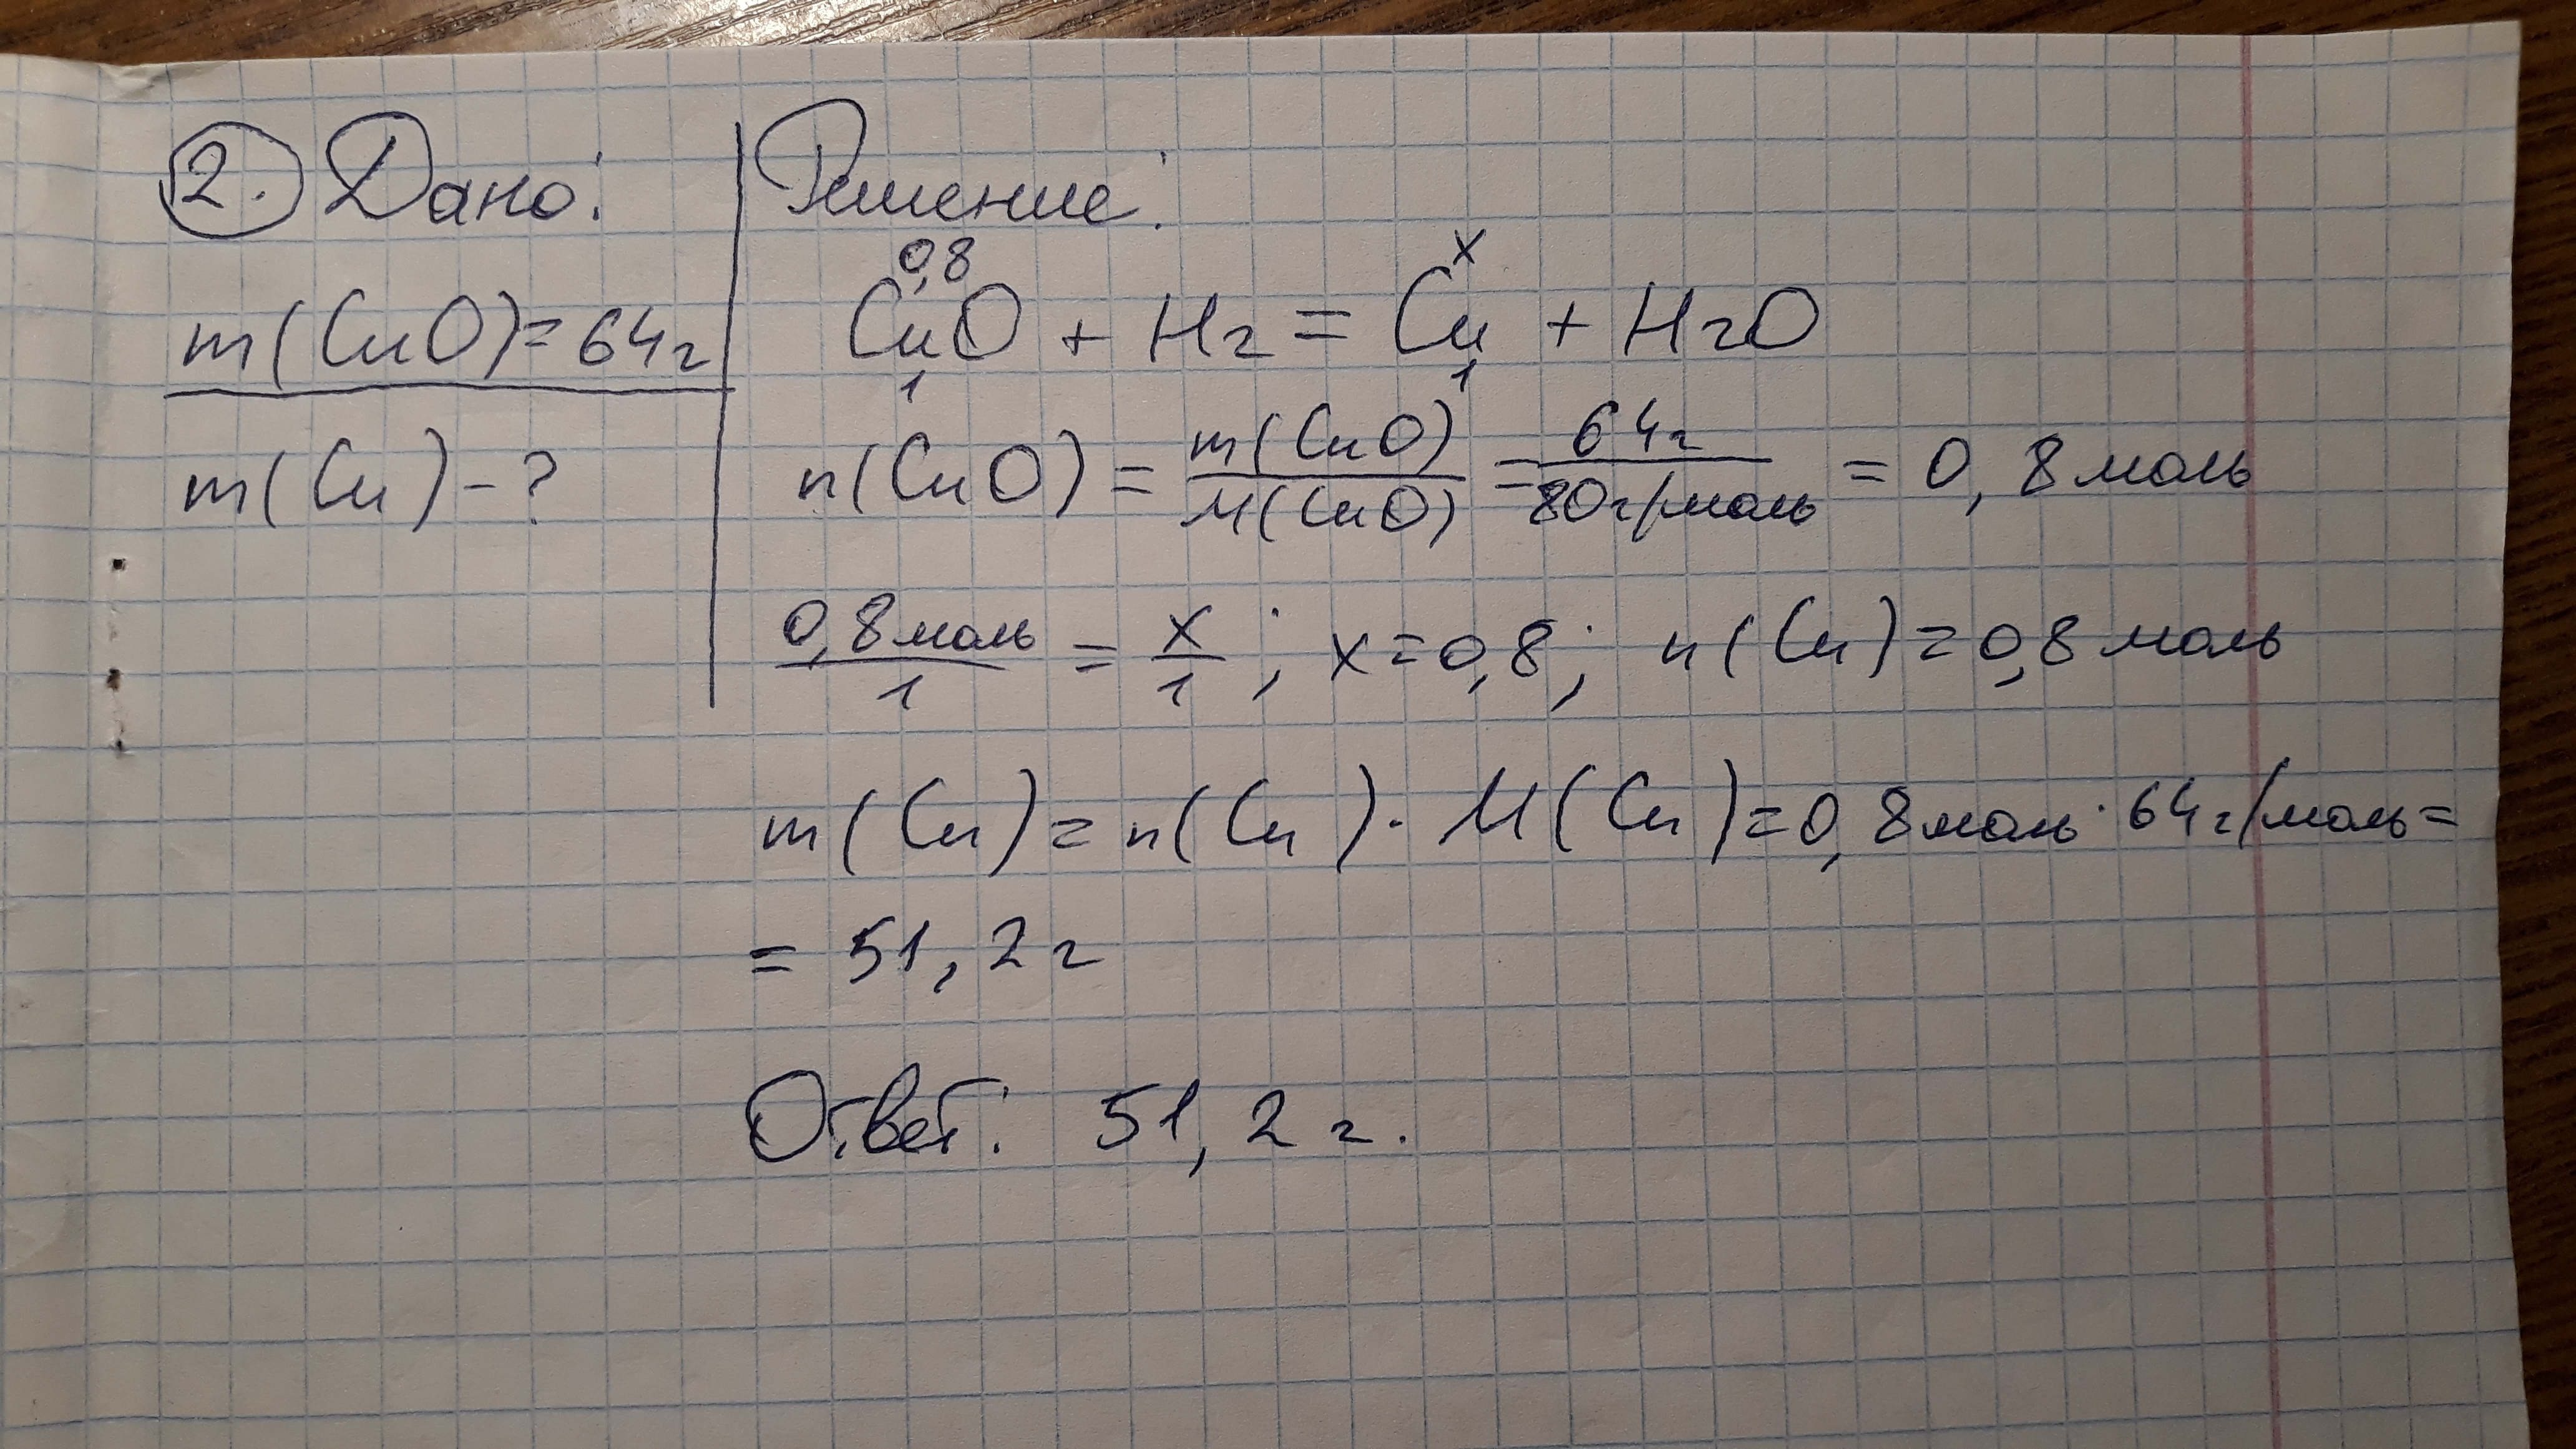 2. Дано:
m(CuO)=64г
m(Cu)-?
Решение:
0,8 x
CuO + H2 = Cu + H2O
1 1
n(CuO) = m(CuO)/M(CuO) = 64г/80г/моль = 0,8 моль
0,8 моль/1 = x/1; x=0,8; n(Cu)=0,8 моль
m(Cu)=n(Cu)·M(Cu)=0,8моль·64г/моль=
= 51,2 г
Ответ: 51,2 г.